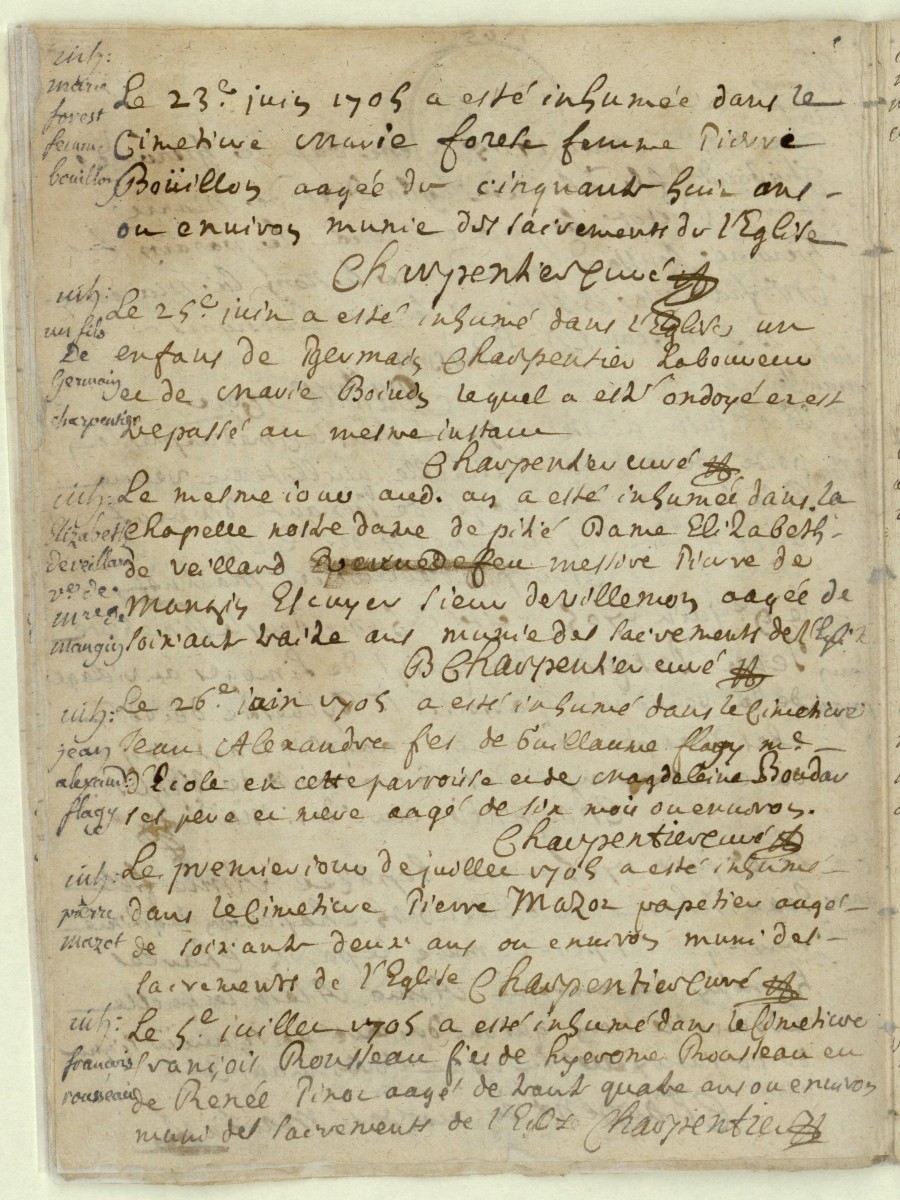 inh:
marie
forest
femme
bouillon
Le 23e juin 1705 a esté inhumée dans le
Cimetiere Marie foreste femme Pierre
Boüillon aagée de cinquante huit ans -
ou environ munie des sacrements de l'Eglise
Charpentier curé
inh:
un fils
De
Germain
charpentier
Le 25e juin a esté inhumé dans l'Eglise un
enfans de Germain Charpentier laboureur
et de Marie Boindon lequel a esté ondoyé et est
trepassé au mesme instant
Charpentier curé
inh:
Elizabeth
de veillard
ve de
mre de
mangin
Le mesme jour aud. an a esté inhumée dans la
chapelle nostre dame de pitié Dame Elizabeth
de veillard veuve de feu messire Pierre de
Mangin Escuyer sieur de villemon aagée de
soixante traize ans munie des sacrements de l'Eglise
B Charpentier curé
inh:
jean
alexandre
flagy
Le 26e juin 1705 a esté inhumé dans le Cimetiere
Jean Alexandre fils de Guillaume flagy me
d'Ecole en cette parroisse et de Magdeleine Boudar
ses pere et mere aagé de six mois ou environ.
Charpentier curé
inh:
pierre
mazot
Le premier jour de juillet 1705 a esté inhumé -
dans le Cimetiere Pierre Mazot papetier aagé -
de soixante deux ans ou environ muni des -
sacrements de l'Eglise Charpentier curé
inh:
françois
rousseau
Le 5e juillet 1705 a esté inhumé dans le Cimetiere
françois Rousseau fils de hyerome Rousseau et
de Renée Pinot aagé de trante quatre ans ou environ
muni des sacrements de l'Eglise Charpentier